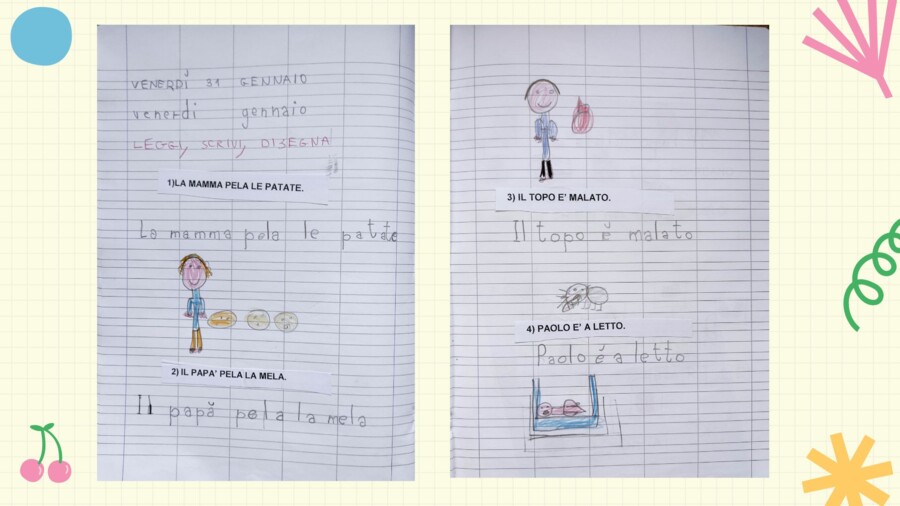 VENERDÌ 31 GENNAIO
venerdì gennaio
LEGGI, SCRIVI, DISEGNA
1)LA MAMMA PELA LE PATATE.
La mamma pela le patate
2) IL PAPA' PELA LA MELA.
Il papă pela la mela
3) IL TOPO E' MALATO.
Il topo ĕ malato
4) PAOLO E' A LETTO.
Paolo ĕ a letto